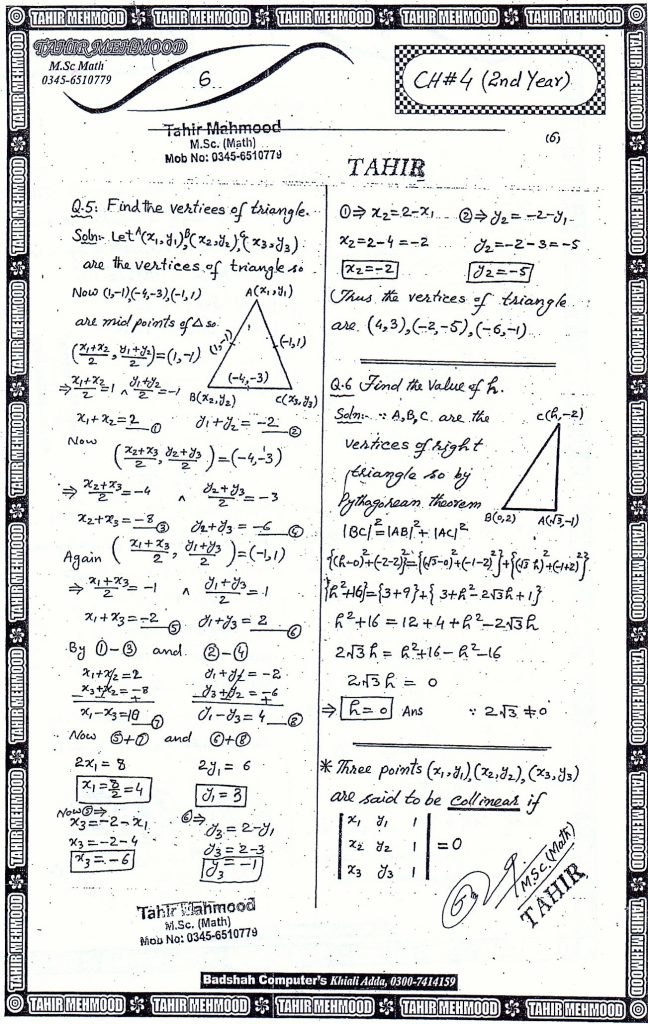 TAHIR MEHMOOD TAHIR MEHMOOD TAHIR MEHMOOD TAHIR MEHMOOD TAHIR MEHMOOD
TAHIR MEHMOOD
M.Sc Math
0345-6510779
6
CH#4 (2nd Year)
Tahir Mahmood
M.Sc. (Math)
Mob No: 0345-6510779
(6)
TAHIR
Q.5. Find the vertices of triangle.
Soln:- Let A(x₁,y₁), B(x₂,y₂), C(x₃,y₃)
are the vertices of triangle so
Now (1,-1),(-4,-3),(-1,1)
are mid points of Δ so
((x₁+x₂)/2, (y₁+y₂)/2) = (1,-1)
⇒ (x₁+x₂)/2 = 1 ∧ (y₁+y₂)/2 = -1
x₁+x₂ = 2 ① y₁+y₂ = -2 ②
A(x₁,y₁)
(1,-1)
(-1,1)
(-4,-3)
B(x₂,y₂)
C(x₃,y₃)
Now
((x₂+x₃)/2, (y₂+y₃)/2) = (-4,-3)
⇒ (x₂+x₃)/2 = -4 ∧ (y₂+y₃)/2 = -3
x₂+x₃ = -8 ③ y₂+y₃ = -6 ④
Again ((x₁+x₃)/2, (y₁+y₃)/2) = (-1,1)
⇒ (x₁+x₃)/2 = -1 ∧ (y₁+y₃)/2 = 1
x₁+x₃ = -2 ⑤ y₁+y₃ = 2 ⑥
By ①-③ and ②-④
x₁+x₂ = 2 y₁+y₂ = -2
x₃+x₂ = -8 y₃+y₂ = -6
x₁-x₃ = 10 ⑦ y₁-y₃ = 4 ⑧
Now ⑤+⑦ and ⑥+⑧
2x₁ = 8 2y₁ = 6
x₁ = 8/2 = 4 y₁ = 3
Now ⑤⇒ ⑥⇒
x₃ = -2-x₁ y₃ = 2-y₁
x₃ = -2-4 y₃ = 2-3
x₃ = -6 y₃ = -1
Tahir Mahmood
M.Sc. (Math)
Mob No: 0345-6510779
①⇒ x₂ = 2-x₁ ②⇒ y₂ = -2-y₁
x₂ = 2-4 = -2 y₂ = -2-3 = -5
x₂ = -2 y₂ = -5
Thus the vertices of triangle
are (4,3),(-2,-5),(-6,-1)
Q.6 Find the value of h.
Soln:- ∵ A,B,C are the
vertices of right
triangle so by
Pythagorean theorem
|BC|² = |AB|² + |AC|²
C(h,-2)
B(0,2)
A(√3,-1)
{(h-0)²+(-2-2)²}={(√3-0)²+(-1-2)²}+{(√3-h)²+(-1+2)²}
{h²+16}={3+9}+{3+h²-2√3h+1}
h²+16 = 12+4+h²-2√3h
2√3h = h²+16-h²-16
2√3h = 0
⇒ h=0 Ans ∵ 2√3 ≠ 0
* Three points (x₁,y₁),(x₂,y₂),(x₃,y₃)
are said to be collinear if
| x₁ y₁ 1 |
| x₂ y₂ 1 | = 0
| x₃ y₃ 1 |
M.SC.(Math)
TAHIR
Badshah Computer's Khiali Adda, 0300-7414159
TAHIR MEHMOOD TAHIR MEHMOOD TAHIR MEHMOOD TAHIR MEHMOOD TAHIR MEHMOOD